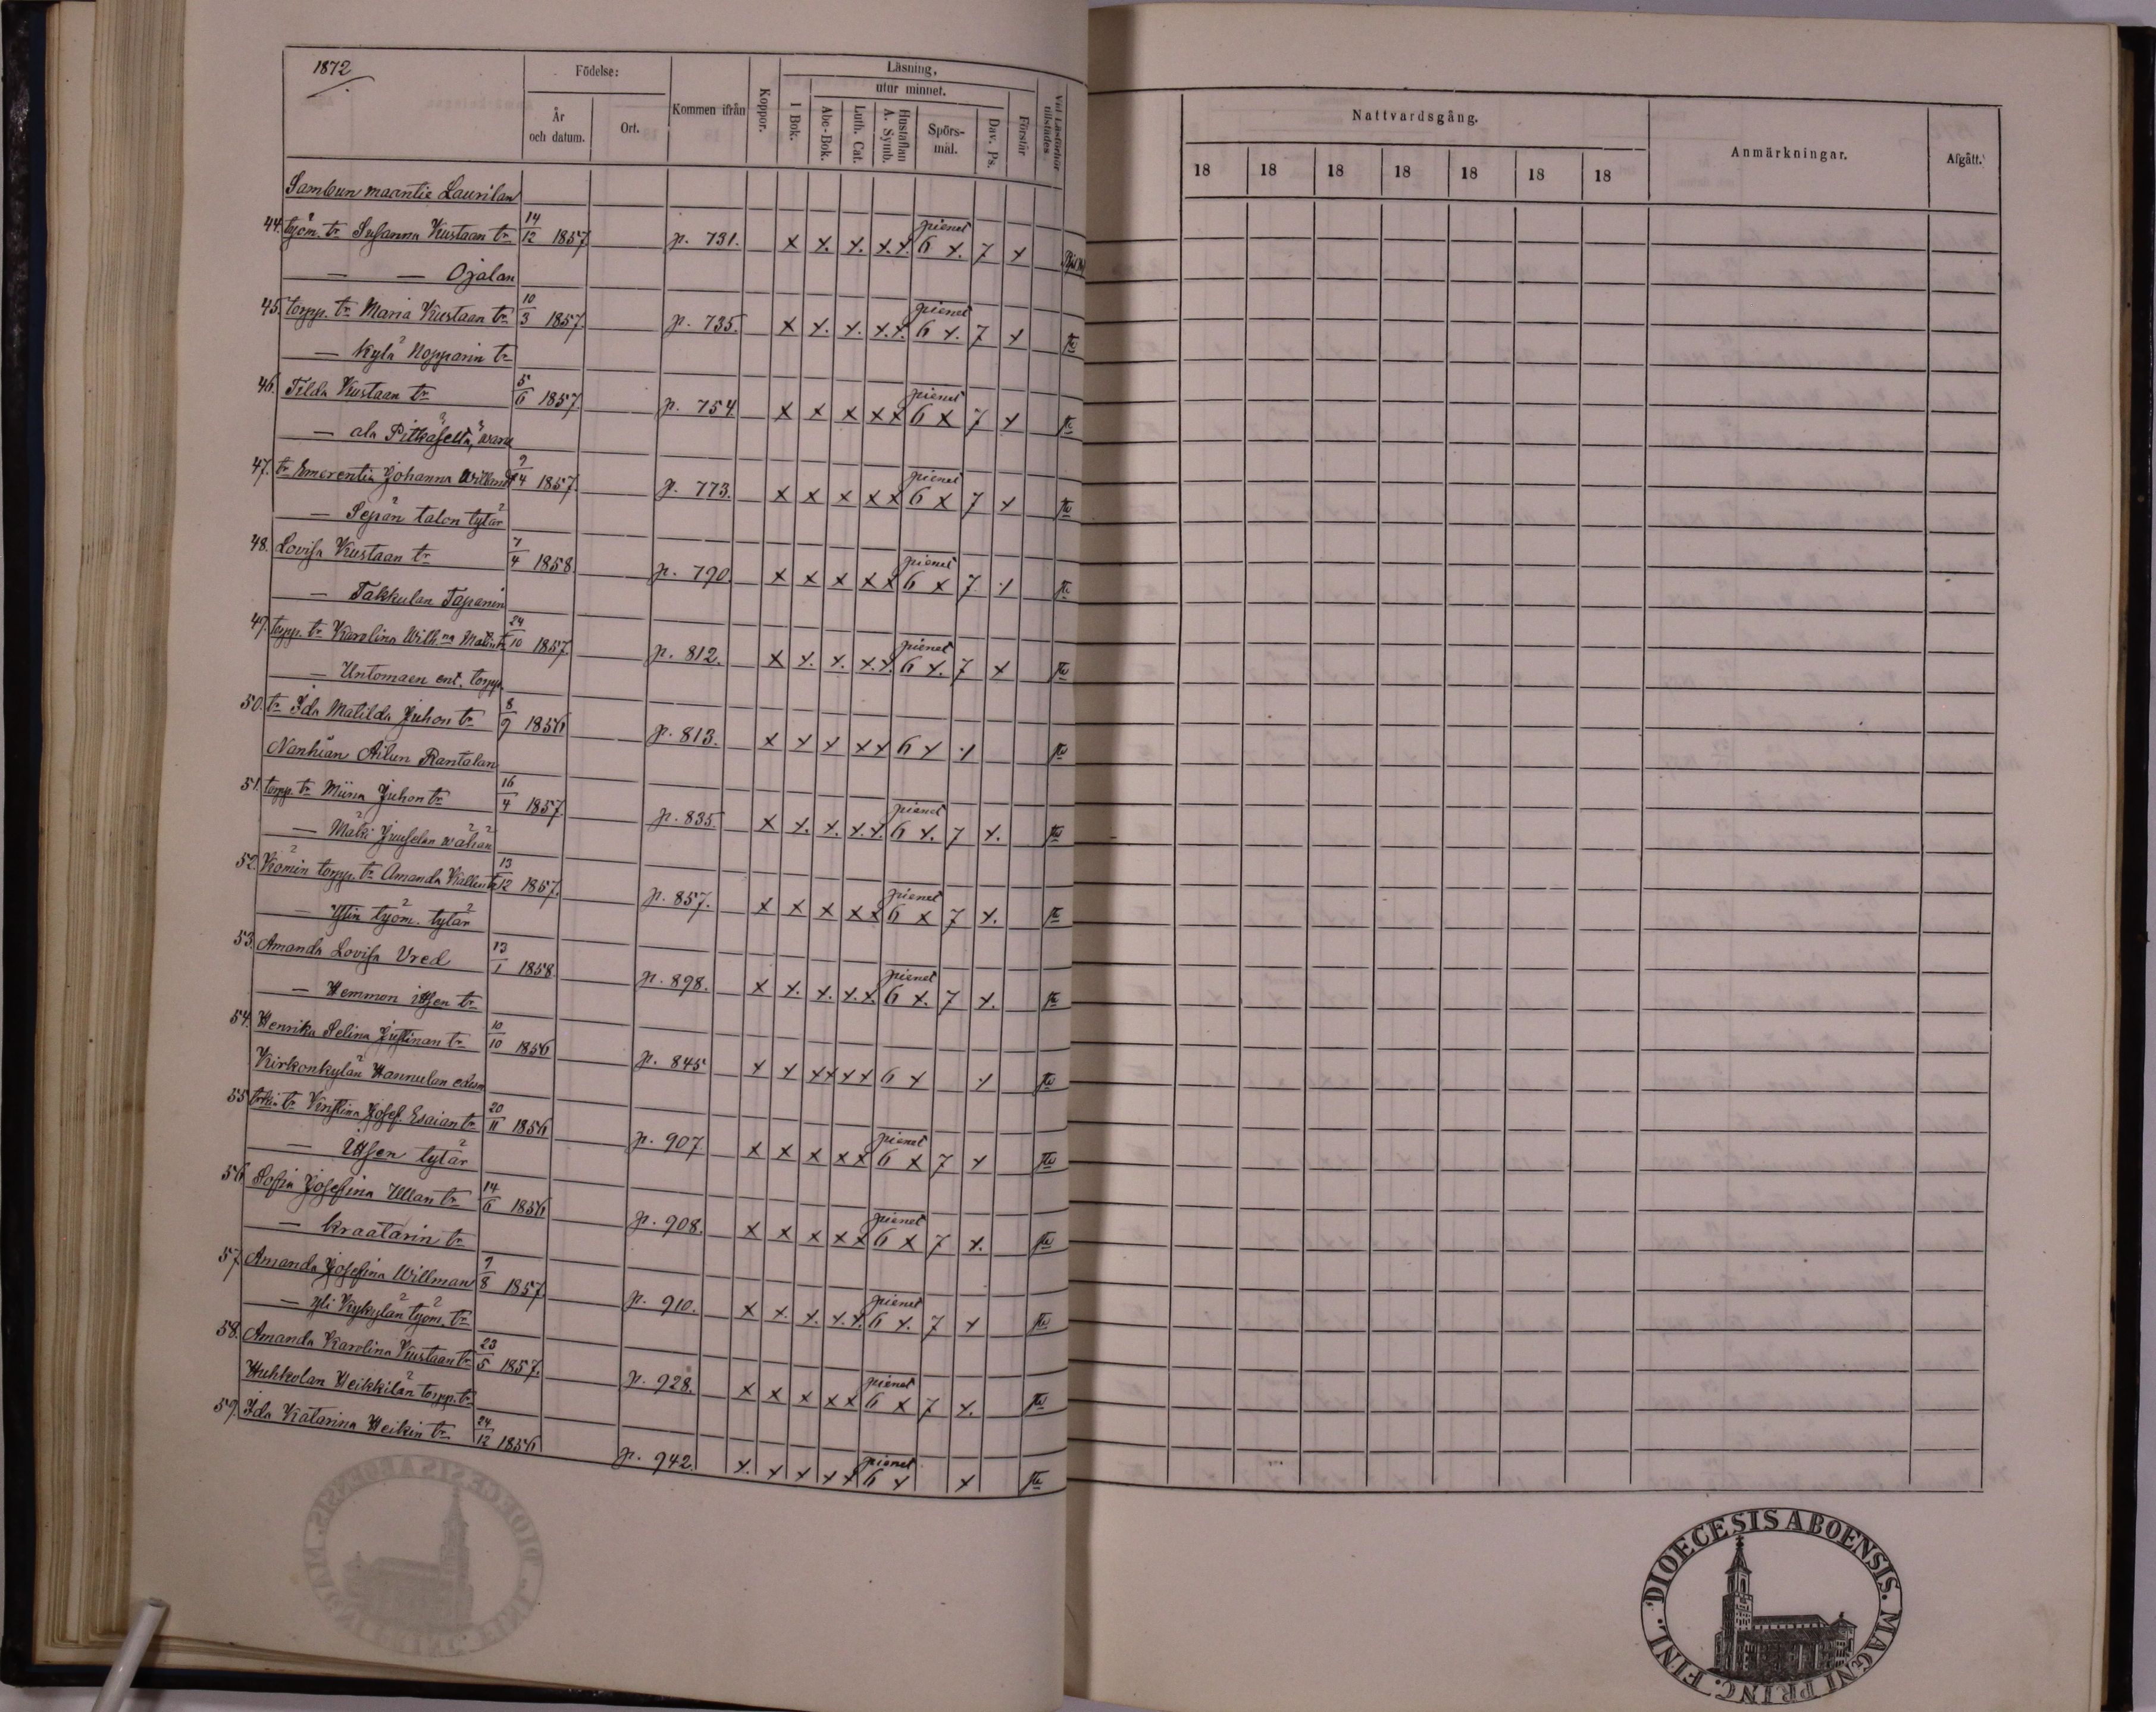 1872
Födelse:
Läsning,
utur minnet.
År och datum.
Ort.
Kommen ifrån
Koppor.
I Bok.
Abc-Bok.
Luth. Cat.
Hustaflan A. Symb.
Spörs-mål.
Dav. Ps.
Förstår
Vid Läsförhör tillstädes
Nattvardsgång.
Anmärkningar.
Afgått.
18 18 18 18 18 18 18
maantie Laurilan
44. työm. tr Susanna Kustaan tr 14/12 1857 p. 731. x x. x. x.x. pienet 6 x. 7 x
— — Ojalan
45. torpp. tr Maria Kustaan tr 10/3 1857. p. 735. x x. x. x.x. pienet 6 x. 7 x
— Kylä Nopparin tr
46. Tilda Kustaan tr 5/6 1857. p. 754 x x x x x pienet 6 x 7 x
— ala
47. tr Emerentia Johanna 4 1857. p. 773. x x x x x pienet 6 x 7 x
— Sepän talon tytär
48. Lovisa Kustaan tr 7/4 1858. p. 790. x x x x x pienet 6 x 7 x
— Takkulan Tapanin
49. torpp. tr Karolina Wilh.na Matin tr 24/10 1857. p. 812. x x. x. x.x. pienet 6 x. 7 x
— Untomaen ent. torpp.
50. tr Ida Matilda Juhon tr 8/9 1856 p. 813. x x x x x 6 x x
Nanhian Ailun Rantalan
51. torpp. tr Miina Juhon tr 16/4 1857. p. 835. x x. x. x.x. pienet 6 x. 7 x.
— Juuselan wähän
52. Kömin torpp. tr Amanda Kallen tr 13/12 1857. p. 857. x x x x x pienet 6 x 7 x.
— työm. tytär
53. Amanda Lovisa Vred 13/1 1858 p. 898. x x. x. x.x pienet 6 x. 7 x.
— Hemmon itsen tr
54. Henrika Selina Justinan tr 10/10 1856 p. 845 x x x x x x 6 x x
Kirkonkylän Hannulan
55. tr Kristina Josef. Esaian tr 20/11 1856 p. 907 x x x x x pienet 6 x 7 x
— Itsen tytär
56. Sofia Josefina Ullan tr 14/6 1856 p. 908. x x x x x pienet 6 x 7 x.
— kraatarin tr
57. Amanda Josefina Willman 9/8 1857. p. 910. x x. x. x.x. pienet 6 x. 7 x
— yli Kykylän työm. tr
58. Amanda Karolina Kustaan tr 23/5 1857. p. 928. x x x x x pienet 6 x 7 x.
Huhkolan Heikkilän torpp. tr
59. Ida Katarina Heikin tr 24/12 1856 p. 942. x. x x x x pienet 6 x x
DIOECESIS ABOENSIS. MAGNI PRINC. FINL.